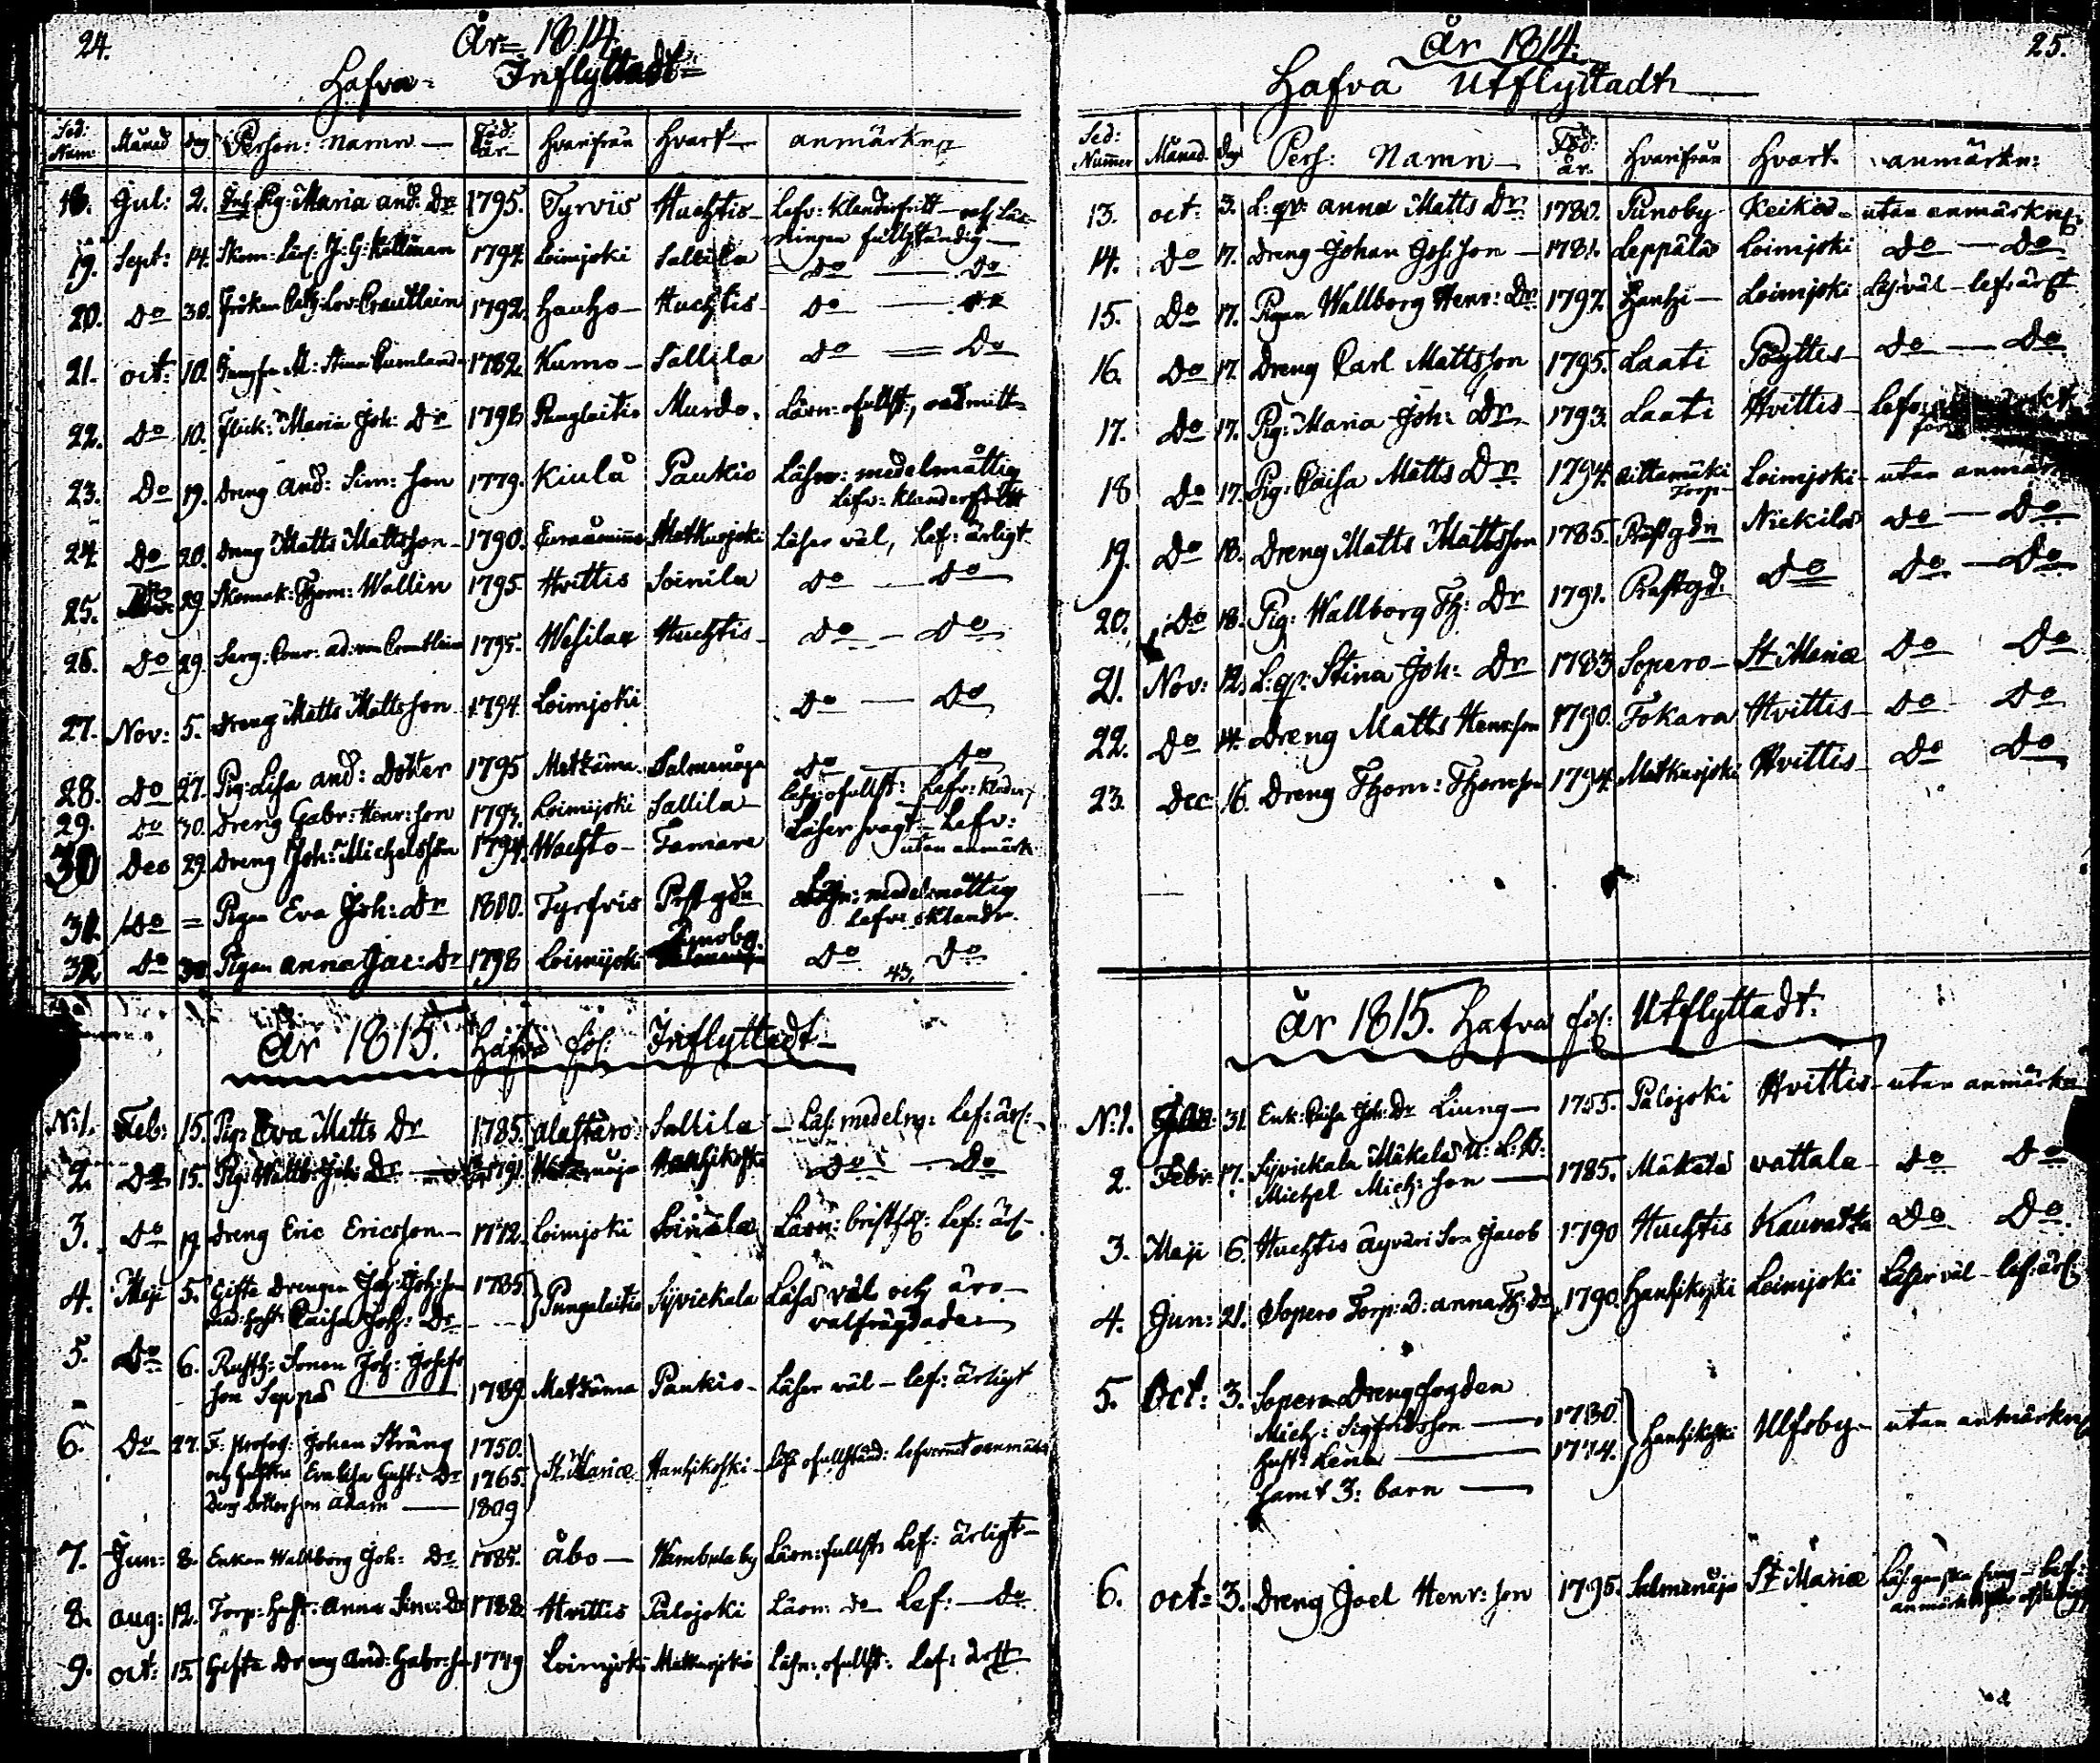 24.
År 1814.
Hafva Inflyttadt
Sed: Num: Månad dag Person: namn Föd: år Hvarifrån Hvart anmärkn
18. Jul: 2. Pig: Maria and: Dr 1795. Tyrvis Huchtis Lefv: klanderfritt och Läs-
ningen fullständig
19. Sept: 14. J: G: Källman 1794. Loimjoki Sallila Do Do
20. Do 30. Fröken 1792. Hauho Huchtis Do Do
21. oct: 10. Jungfru M: Stina 1782. Kumo Sallila Do Do
22. Do 10. Flick: Maria Joh: Dr 1798 Pungalaitio Murdo. Läsn: ofullst:, admitt
23. Do 19. Dreng And: Sim: Son 1779. Kiula Paukio Läsn: medelmåttig
Lefv: klanderfritt
24. Do 20. Dreng Matts Mattsson 1790. Euraåminne Matkusjoki Läser väl, Lef: ärligt
25. 29. Skomak: Thom: Wallin 1795. Hvittis Soinila Do Do
26. Do 29. Serg: ad: von 1795. Huchtis Do Do
27. Nov: 5. Dreng Matts Mattsson 1794 Loimjoki Do Do
28. Do 27. Pig: Lisa and: Dotter 1795 Metzäma Salmenoja Do Do
29. Do 30. Dreng Gabr: Henr: son 1793. Loimjoki Sallila ofullst: Lefv:
30 Dec 29. Dreng Joh: Michelsson 1794. Wachto Tamare Läser svagt Lefv:
utan anmärk
31. Do = Pigan Eva Joh: Dr 1800. Tyrfvis Prstgdn Läsn: medelmåttig
lefv: oklandr.
32. Do 30. Pigan anna Jac: Dr 1798 Loimijoki Punoby Do Do
År 1815. Hafva föl: Inflyttadt
N:1. Feb: 15. Pig: Eva Matts Dr 1785. Alastaro Sallila Läs: medelm: Lef: ärl:
2. Do 15. Pig: Wallb: Joh: Dr 1791. Hanhikoski Do Do
3. Do 17. Dreng Eric Ericsson 1772. Loimjoki Soinila Läsn: Lef: ärl
4. Maji 5. Gifta Drengen Joh: Joh: son 1785.
med hust: Caisa Joh: Dr Pungalaitio Syvickala Läsa väl och äro
välfrägdade
5. Do 6. Rusth: Sonen Joh: Josefs
son Seppä 1789. Metzäma Paukio Läser väl lef: ärligt
6. Do 27. F: Profos: Johan Sträng 1750.
och Hustru Eva Lisa Gust: Dr 1765. St Mariæ Hanhikoski Läs: ofullständ:
Dess Dotterson Adam 1809
7. Jun: 8. Enkan Wallborg Joh: Dr 1785. Åbo Wambula by Läsn: fullst: Lef: ärligt
8. aug: 12. Torp: Hust: anna Sim: Dr 1788. Hvittis Palojoki Läsn: Do Lef: Do
9. oct: 15. Gifta Dreng And: Gabr: son 1779 Loimjoki Matkusjoki Läsn: ofullst: Lef:
25.
År 1814.
Hafva Utflyttadt
Sed: Numer Månad Dag Pers: Namn Föd: år Hvarifrån Hvart anmärkn:
13. oct: 3. L: qv: anna Matts Dr 1780. Punoby Keikiö utan anmärkn
14. Do 17. Dreng Johan Johsson 1781. Leppälä Loimjoki Do Do
15. Do 17. Pigan Wallborg Henr: Dr 1797. Hanhi Loimjoki Läs: väl lef: ärl
16. Do 17. Dreng Carl Mattsson 1795. Laati Pöyttis Do Do
17. Do 17. Pig: Maria Joh: Dr 1793. Laati Hvittis Lefv:
18 Do 17. Pig: Caisa Matts Dr 1794. Aittamäki Torp Loimjoki utan anmär
19. Do 18. Dreng Matts Mattsson 1785. Prästgdn Nickilä Do Do
20. Do 18. Pig: Wallborg Th: Dr 1791. Prästgd: Do Do Do
21. Nov: 12. L: qv: Stina Joh: Dr 1783 Sopero St Mariæ Do Do
22. Do 14. Dreng Matts Henrsson 1790. Tokara Hvittis Do Do
23. Dec 16. Dreng Thom: Thomsson 1794. Matkusjoki Hvittis Do Do
År 1815. Hafva föl: Utflyttadt.
N:1. Jan: 31. Enk: Caisa Joh: Dr Liung 1755. Palojoki Hvittis utan anmärkn
2. Febr: 17. Syvickala Mäkelä
Michel Mich: son 1785. Mäkelä Vattala Do Do
3. Maji 6. Huchtis Äyväri Son Jacob 1790 Huchtis Kauvatsa Do Do
4. Jun: 21. Sopero Torp: D: anna Th: Dr 1790. Hanhikoski Loimjoki Läser väl lef: ärl:
5. Oct: 3. Sopero Drengfogden
Mich: Sigfridsson 1780
Hust: Lena 1774. Hanhikoski Ulfsby utan anmärkn
samt 3: barn
6. oct: 3. Dreng Joel Henr: son 1795. Salmenoja St Mariæ